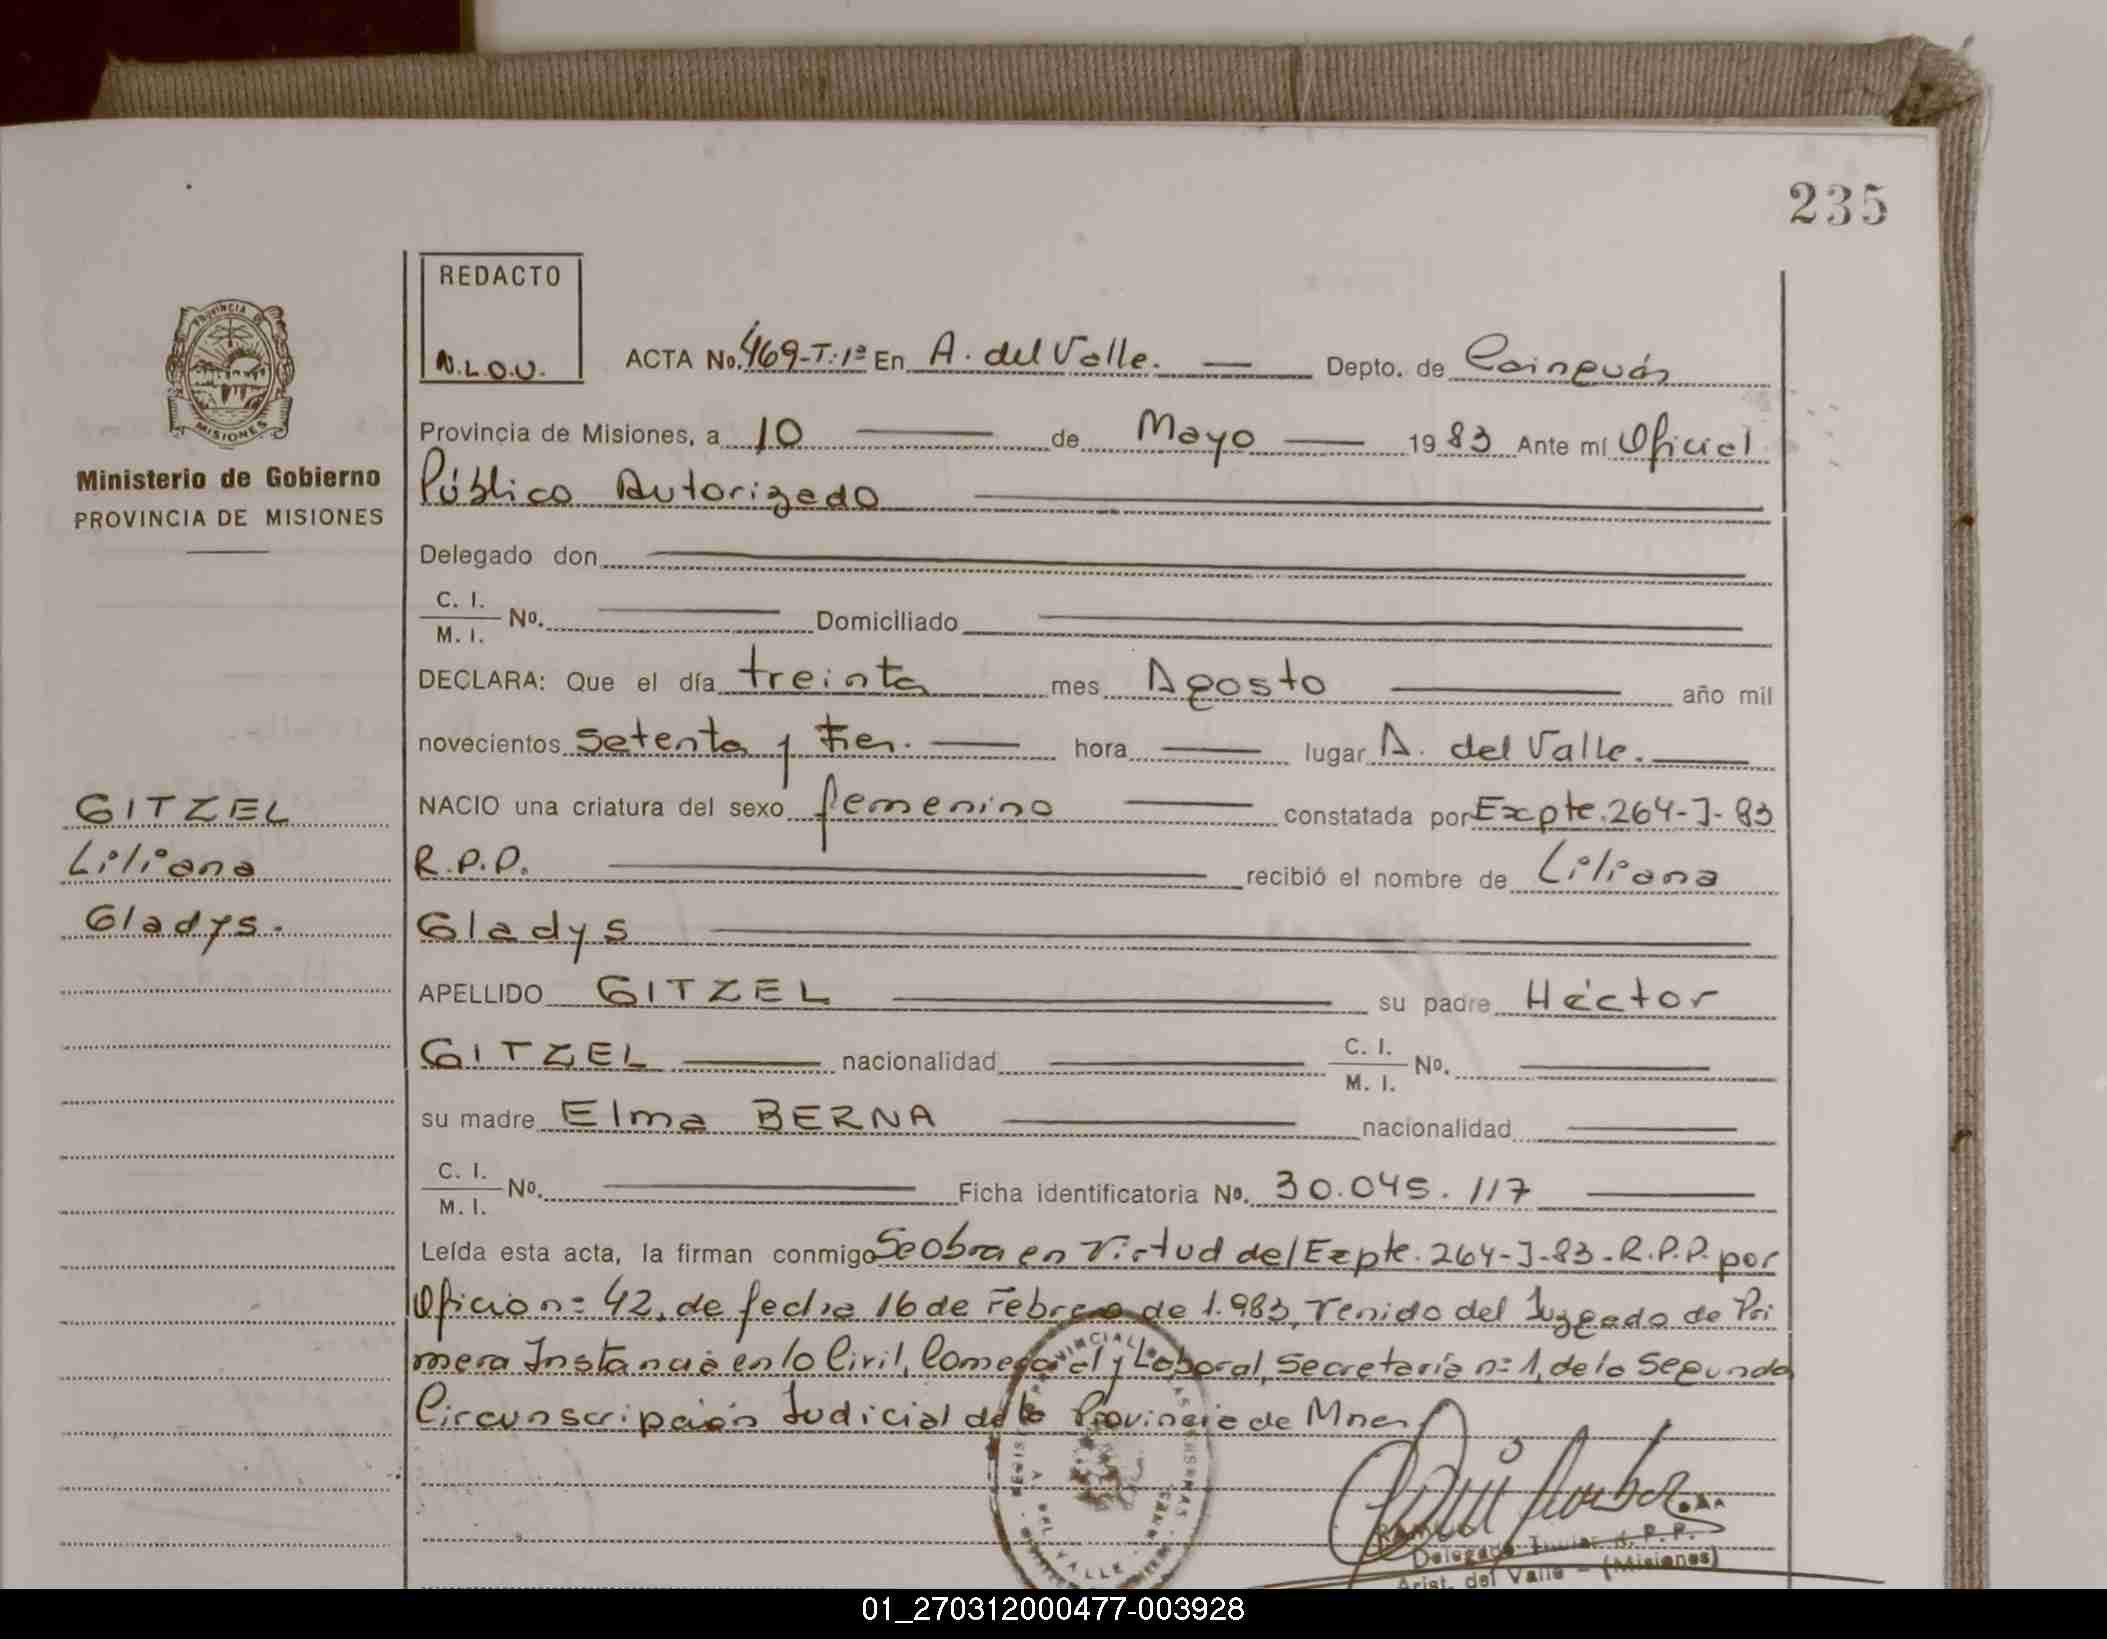 235
REDACTO
N.L.O.U.
PROVINCIA DE
MISIONES
Ministerio de Gobierno
PROVINCIA DE MISIONES
ACTA No. 469-T:1ª En A. del Valle. Depto. de Cainguás
Provincia de Misiones, a 10 de Mayo 1983 Ante mí Oficial
Público Autorizado
Delegado don
C. I.
M. I. No. Domiciliado
DECLARA: Que el día treinta mes Agosto año mil
novecientos setenta y tres. hora lugar A. del Valle.
NACIO una criatura del sexo femenino constatada por Expte. 264-J-83
R.P.P. recibió el nombre de Liliana
Gladys
APELLIDO GITZEL su padre Héctor
GITZEL nacionalidad C. I.
M. I. No.
su madre Elma BERNA nacionalidad
C. I.
M. I. No. Ficha identificatoria No. 30.045.117
Leída esta acta, la firman conmigo Se obra en virtud del Expte. 264-J-83-R.P.P. por
Oficio nº 42, de fecha 16 de Febrero de 1.983, venido del Juzgado de Pri
mera Instancia en lo Civil, Comercial y Laboral, Secretaría nº 1, de la Segunda
Circunscripción Judicial de la Provincia de Mnes.
GITZEL
Liliana
Gladys.
DEL VALLE
Delegado Titular R. P. P.
Arist. del Valle - (Misiones)
01_270312000477-003928